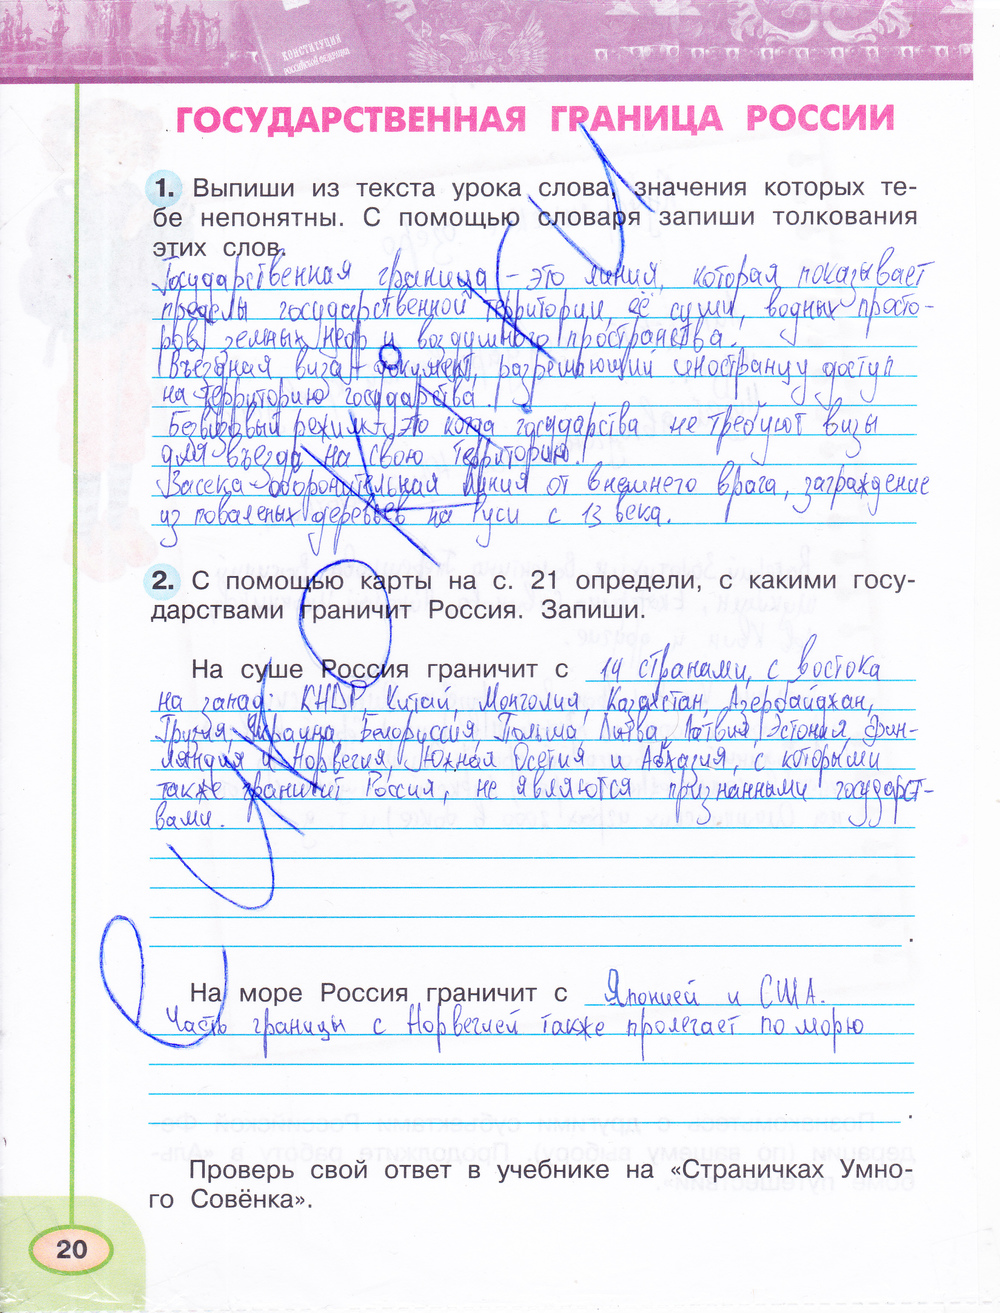 КОНСТИТУЦИЯ
РОССИЙСКОЙ ФЕДЕРАЦИИ
ГОСУДАРСТВЕННАЯ ГРАНИЦА РОССИИ
1. Выпиши из текста урока слова, значения которых те-
бе непонятны. С помощью словаря запиши толкования
этих слов.
Государственная граница – это линия, которая показывает
пределы государственной территории, её суши, водных просто-
ров, земных недр и воздушного пространства.
Въездная виза – документ, разрешающий иностранцу доступ
на территорию государства.
Безвизовый режим – это когда государства не требуют визы
для въезда на свою территорию.
Засека – оборонительная линия от внешнего врага, заграждение
из поваленых деревьев на Руси с 13 века.
2. С помощью карты на с. 21 определи, с какими госу-
дарствами граничит Россия. Запиши.
На суше Россия граничит с 14 странами, с востока
на запад: КНДР, Китай, Монголия, Казахстан, Азербайджан,
Грузия, Украина, Белоруссия, Польша, Литва, Латвия, Эстония, Фин-
ляндия и Норвегия, Южная Осетия и Абхазия, с которыми
также граничит Россия, не являются признанными государст-
вами.
На море Россия граничит с Японией и США.
Часть границы с Норвегией также пролегает по морю
.
Проверь свой ответ в учебнике на «Страничках Умно-
го Совёнка».
20